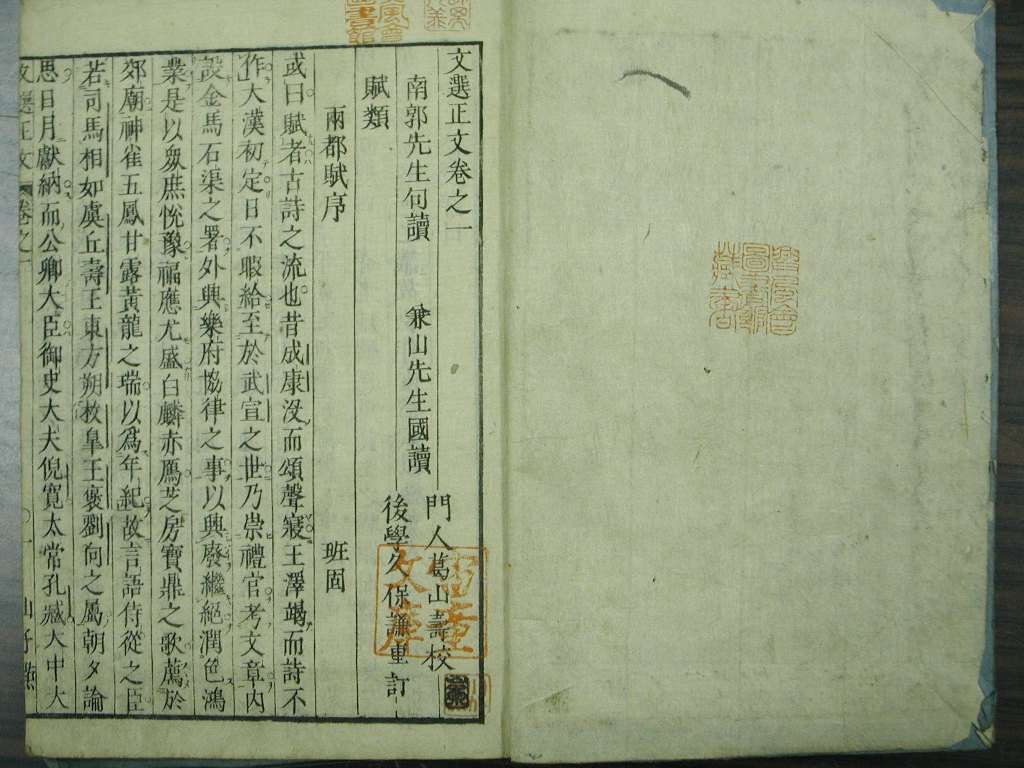 文選正文卷之一
南郭先生句讀 兼山先生國讀
門人葛山壽校
後學久保謙重訂
賦類
兩都賦序 班固
或曰賦者古詩之流也昔成康沒而頌聲寢王澤竭而詩不
作大漢初定日不暇給至於武宣之世乃崇禮官考文章內
設金馬石渠之署外興樂府協律之事以興廢繼絕潤色鴻
業是以眾庶悅豫福應尤盛白麟赤鴈芝房寶鼎之歌薦於
郊廟神雀五鳳甘露黃龍之瑞以為年紀故言語侍從之臣
若司馬相如虞丘壽王東方朔枚皐王褒劉向之屬朝夕論
思日月獻納而公卿大臣御史大夫倪寬太常孔臧大中大
文選正文 卷之一